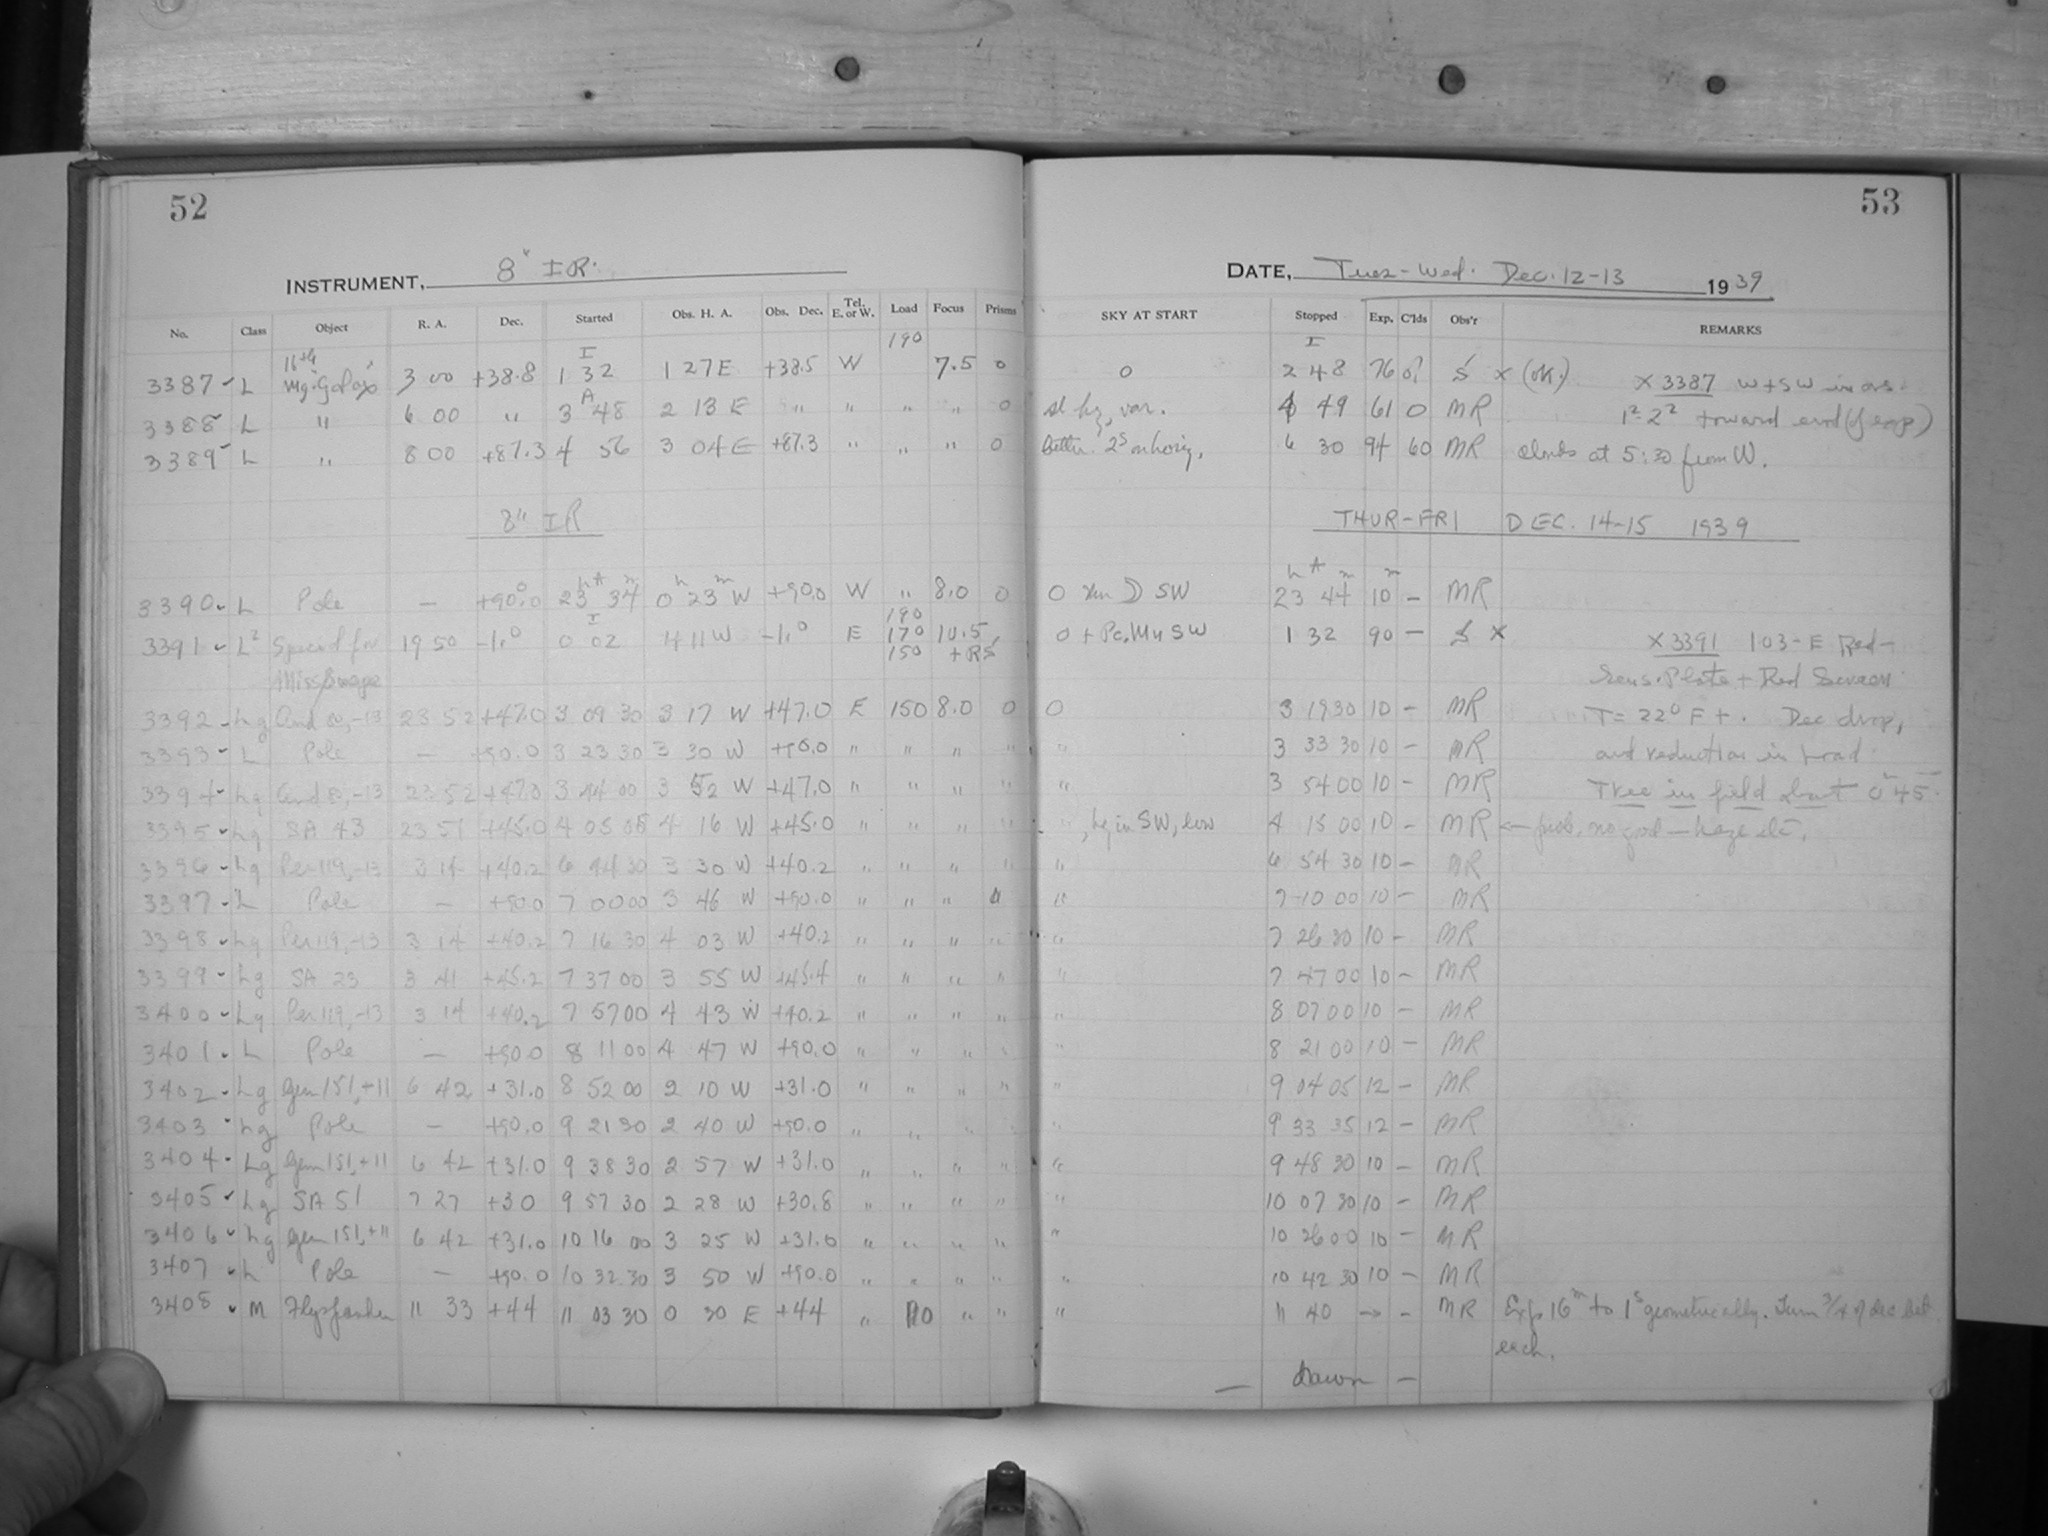 52
53
INSTRUMENT, 8" IR.
DATE, Tues-Wed. Dec. 12-13 1939
No. Class Object R. A. Dec. Started Obs. H. A. Obs. Dec. Tel. E. or W. Load Focus Prisms SKY AT START Stopped Exp. C'lds Obs'r REMARKS
190
16th I I
3387 L Mg. Galax 3 00 +38.8 1 32 1 27 E +38.5 W 7.5 0 0 2 48 76 0? S x (ok.) X 3387 W + SW in ors.
A
3388 L " 6 00 " 3 48 2 13 E " " " " 0 sl hz, var. 4 49 61 0 MR toward end (of exp)
3389 L " 8 00 +87.3 4 56 3 04 E +87.3 " " " 0 better. 2s on horiz, 6 30 94 60 MR clouds at 5:30 from W.
8" IR THUR-FRI DEC. 14-15 1939
h A m h m h A m m
3390 L Pole — +90.0 23 34 0 23 W +90.0 W " 8.0 0 0 SW 23 44 10 — MR
I 190
3391 L2 Special for 19 50 -1.0 0 02 4 11 W -1.0 E 170 10.5 0 + SW 1 32 90 — S x X 3391 103-E Red-
Miss 150 + RS Sens. Plate + Red Screen
3392 Lg And 23 52 +47.0 3 09 30 3 17 W +47.0 E 150 8.0 0 0 3 19 30 10 — MR T = 22° F +. Dec drop,
3393 L Pole — +90.0 3 23 30 3 30 W +90.0 " " " " " 3 33 30 10 — MR and reduction in load
3394 Lg And 23 52 +47.0 3 44 00 3 52 W +47.0 " " " " " 3 54 00 10 — MR Tree in field about 0 45
3395 Lg SA 43 23 51 +45.0 4 05 05 4 16 W +45.0 " " " " " , hz in SW, low 4 15 00 10 — MR ← prob. no good — haze etc.
3396 Lg Per 119, -13 3 14 +40.2 6 44 30 3 30 W +40.2 " " " " " 6 54 30 10 — MR
3397 L Pole — +90.0 7 00 00 3 46 W +90.0 " " " 0 " 7 10 00 10 — MR
3398 Lg Per 119, -13 3 14 +40.2 7 16 30 4 03 W +40.2 " " " " " 7 26 30 10 — MR
3399 Lg SA 23 3 41 +45.2 7 37 00 3 55 W +45.4 " " " " " 7 47 00 10 — MR
3400 Lg Per 119, -13 3 14 +40.2 7 57 00 4 43 W +40.2 " " " " " 8 07 00 10 — MR
3401 L Pole — +90.0 8 11 00 4 47 W +90.0 " " " " " 8 21 00 10 — MR
3402 Lg Gem 151, +11 6 42 +31.0 8 52 00 2 10 W +31.0 " " " " " 9 04 05 12 — MR
3403 Lg Pole — +90.0 9 21 30 2 40 W +90.0 " " " " " 9 33 35 12 — MR
3404 Lg Gem 151, +11 6 42 +31.0 9 38 30 2 57 W +31.0 " " " " " 9 48 30 10 — MR
3405 Lg SA 51 7 27 +30 9 57 30 2 28 W +30.8 " " " " " 10 07 30 10 — MR
3406 Lg Gem 151, +11 6 42 +31.0 10 16 00 3 25 W +31.0 " " " " " 10 26 00 10 — MR
3407 L Pole — +90.0 10 32 30 3 50 W +90.0 " " " " " 10 42 30 10 — MR
3408 M 11 33 +44 11 03 30 0 30 E +44 " 110 " " " 11 40 → - MR Exp. 16m to 1s geometrically. Turn 3/4 of dec bet.
each.
— Dawn —